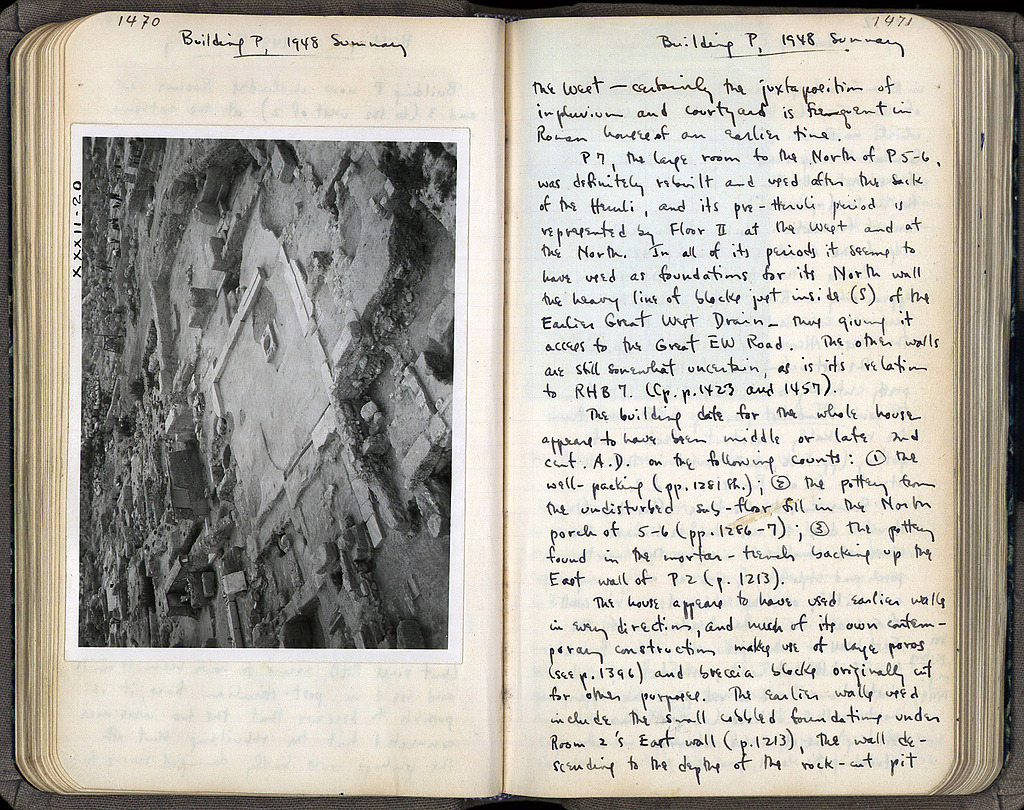 1470
Building P, 1948 Summary
XXXII-20
1471
Building P, 1948 Summary
the West — certainly the juxtaposition of
impluvium and courtyard is frequent in
Roman houses of an earlier time.
P 7, the large room to the North of P 5-6,
was definitely rebuilt and used after the sack
of the Heruli, and its pre-Heruli period is
represented by Floor II at the West and at
the North. In all of its periods it seems to
have used as foundations for its North wall
the heavy line of blocks just inside (S) of the
Earlier Great West Drain — thus giving it
access to the Great EW Road. The other walls
are still somewhat uncertain, as is its relation
to RHB 7. (Cp. p. 1423 and 1457).
The building date for the whole house
appears to have been middle or late 2nd
cent. A.D. on the following counts: ① the
well-packing (pp. 1281 ff.); ② the pottery from
the undisturbed sub-floor fill in the North
porch of 5-6 (pp. 1286-7); ③ the pottery
found in the mortar-trench backing up the
East wall of P 2 (p. 1213).
The house appears to have used earlier walls
in every direction, and much of its own contem-
porary construction makes use of large poros
(see p. 1396) and breccia blocks originally cut
for other purposes. The earlier walls used
include the small cobbled foundations under
Room 2's East wall (p. 1213), the wall de-
scending to the depths of the rock-cut pit